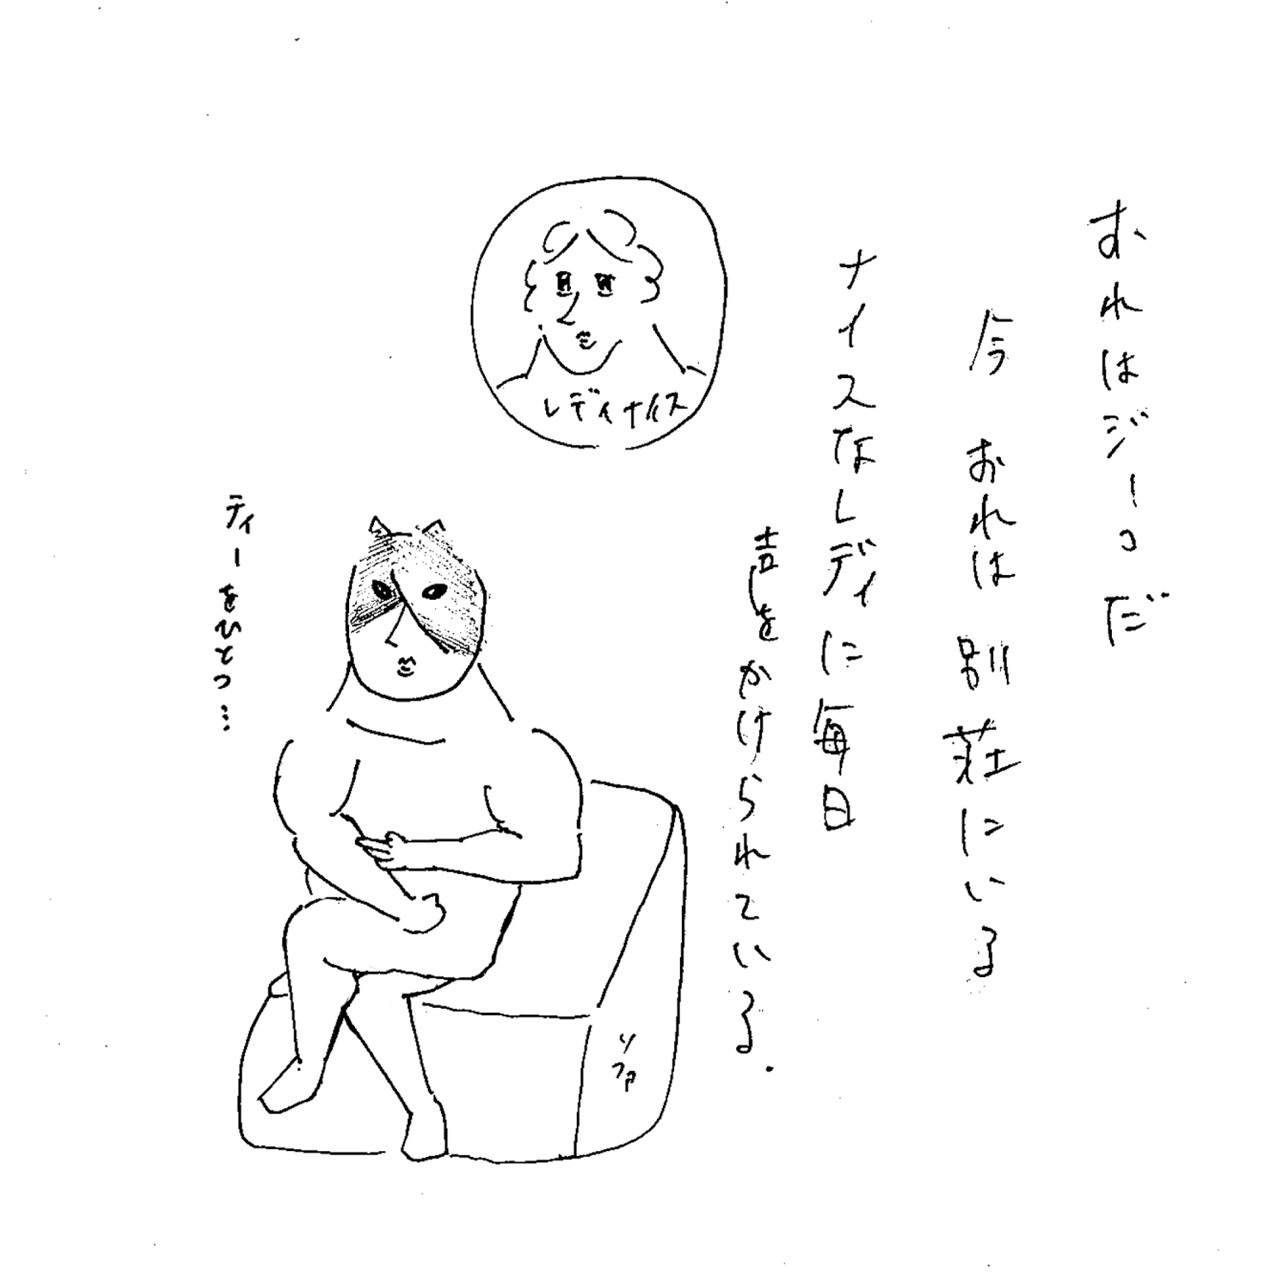 おれはジーコだ
今 おれは 別荘にいる
ナイスなレディに毎日
声をかけられている.
レディナイス
ティーをひとつ…
ソファ